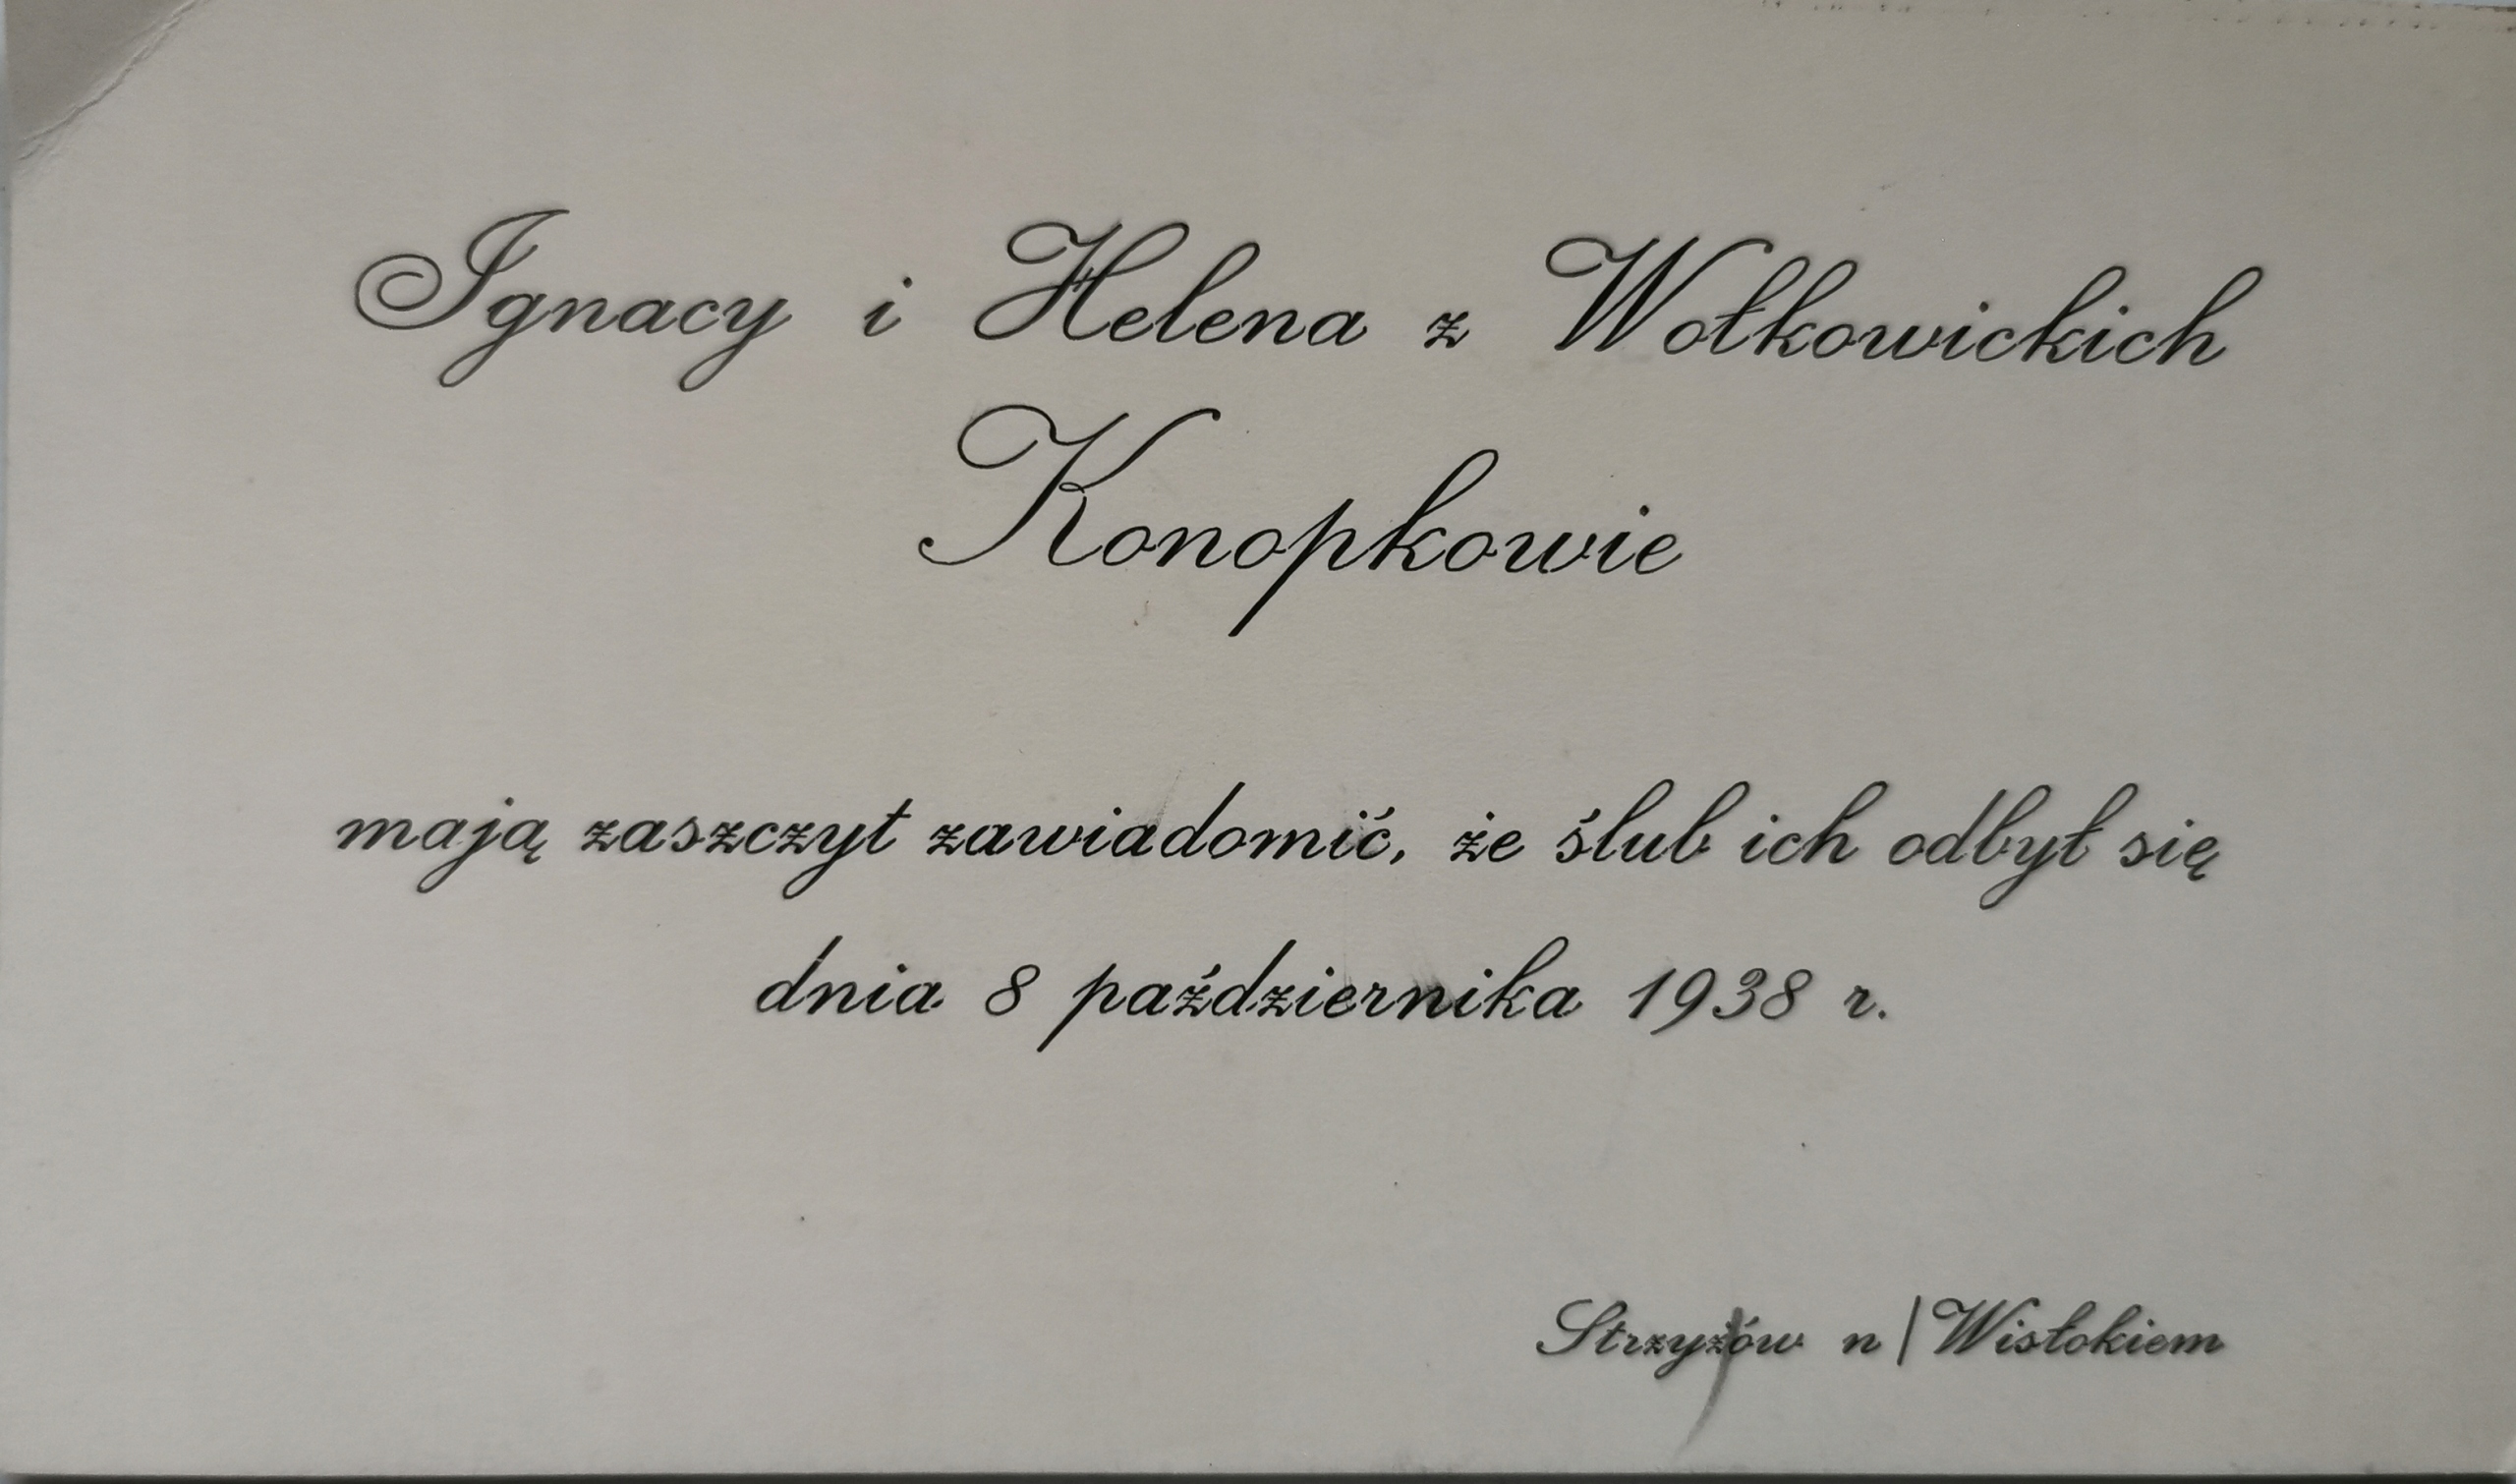 Ignacy i Helena z Wołkowickich
Konopkowie
mają zaszczyt zawiadomić, że ślub ich odbył się
dnia 8 października 1938 r.
Strzyżów n/Wisłokiem